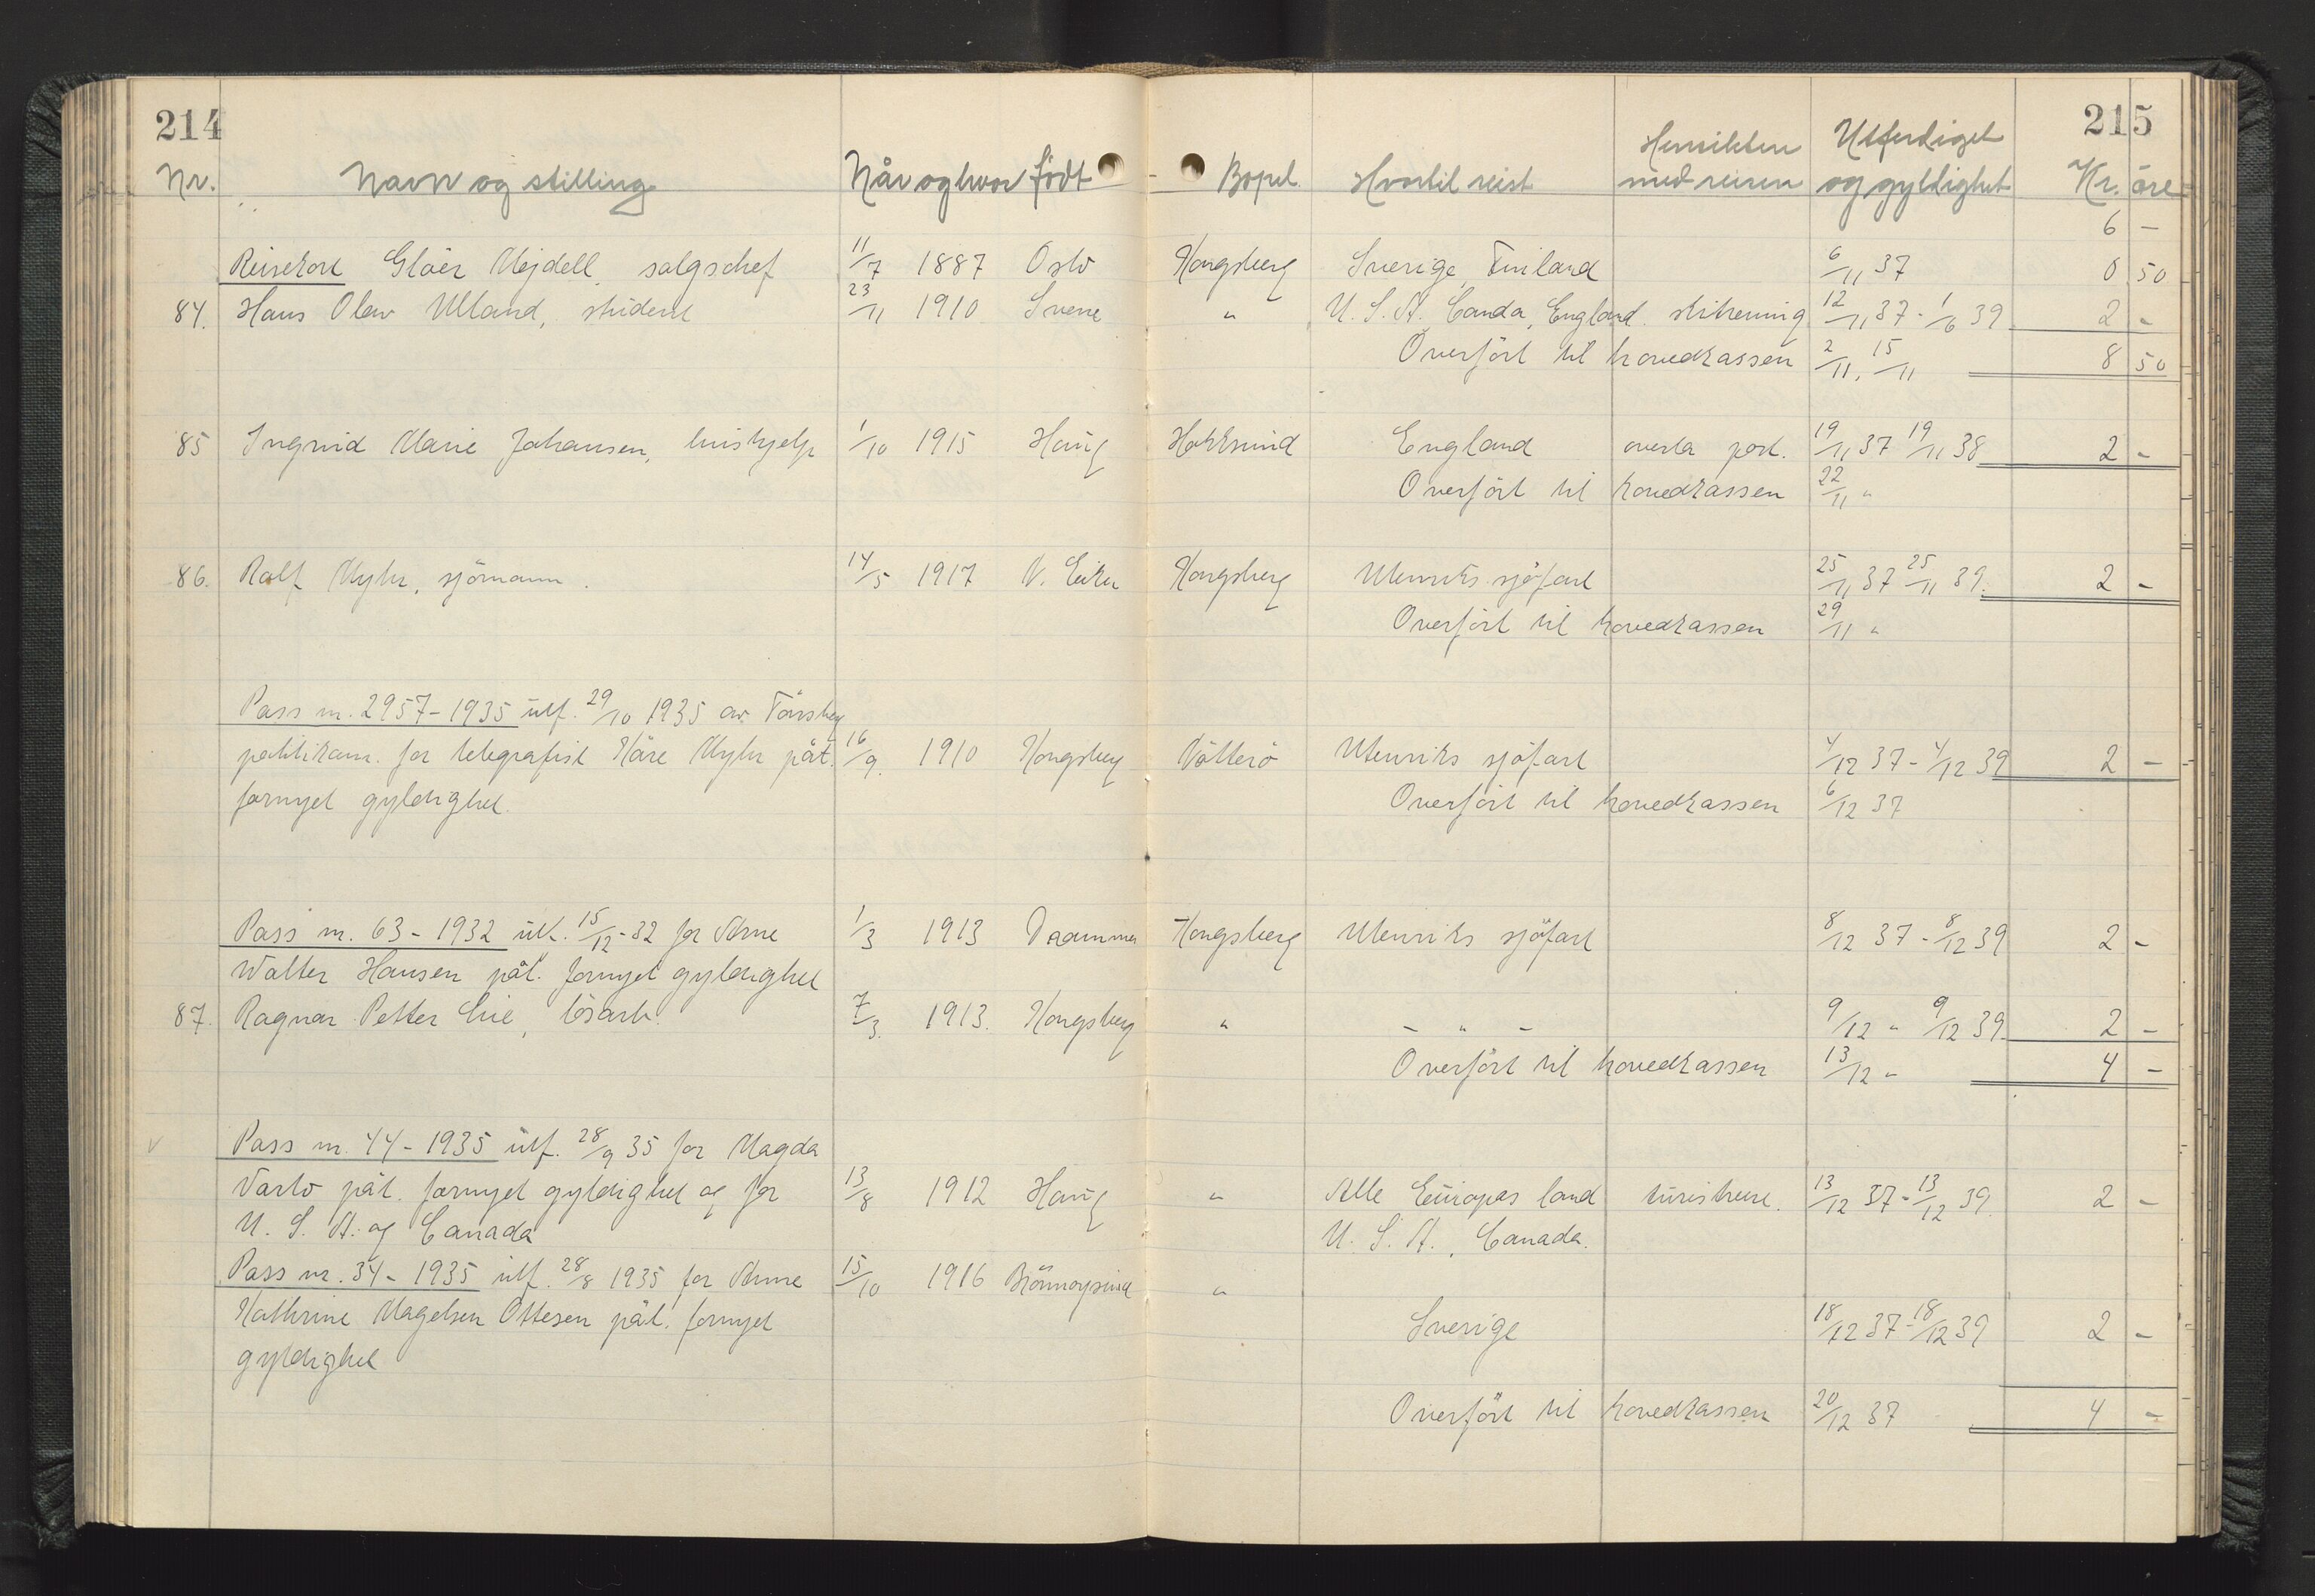 214
215
Hensikten Utferdiget
Nr. Navn og stilling Når og hvor født Bopel Hvortil reist med reisen og gyldighet Kr. øre
6 -
Reisekort Gløer Mejdell, salgschef 11/7 1887 Oslo Kongsberg Sverige, Finland 6/11 37 0 50
84. Hans Olav Ulland, student 23/11 1910 Svene " U.S.A. Canda, England. 12/11 37 - 1/6 39 2 -
Overført til hovedkassen 2/11, 15/11 8 50
85 Ingrid Marie Johansen, hushjelp 1/10 1915 Haug Hokksund England overta post. 19/11 37 19/11 38 2 -
Overført til hovedkassen 22/11 "
86. Rolf Myhr, sjömann. 14/5 1917 V. Eiker Kongsberg Utenriks sjöfart 25/11 37 25/11 39. 2 -
Overført til hovedkassen 29/11 "
Pass nr. 2957 - 1935 utf. 29/10 1935 av Tönsberg
politikam. for telegrafist Kåre Myhr påt. 16/9. 1910 Kongsberg Nötterö Utenriks sjöfart 4/12 37 - 4/12 39 2 -
fornyet gyldighet. Overført til hovedkassen 6/12 37
Pass nr. 63 - 1932 utf. 15/12 - 32 for Arne 1/3 1913 Drammen Kongsberg Utenriks sjöfart 8/12 37 - 8/12 39 2 -
Walter Hansen påt. fornyet gyldighet
87. Ragnar Petter Lie, lösarb. 7/3. 1913. Kongsberg " - " - 9/12 " 9/12 39. 2 -
Overført til hovedkassen 13/12 " 4 -
v Pass nr. 44 - 1935 utf. 28/9 35 for Magda
Varlo påt. fornyet gyldighet og for 13/8 1912 Haug " Alle Europas land turistreise. 13/12 37 - 13/12 39. 2 -
U.S.A. og Canada U.S.A., Canada.
Pass nr. 34 - 1935 utf. 28/8 1935 for Anne 15/10 1916 Brönnöysund "
Kathrine Magelsen Ottesen påt. fornyet Sverige 18/12 37 - 18/12 39 2 -
gyldighet
Overført til hovedkassen 20/12 37 4 -